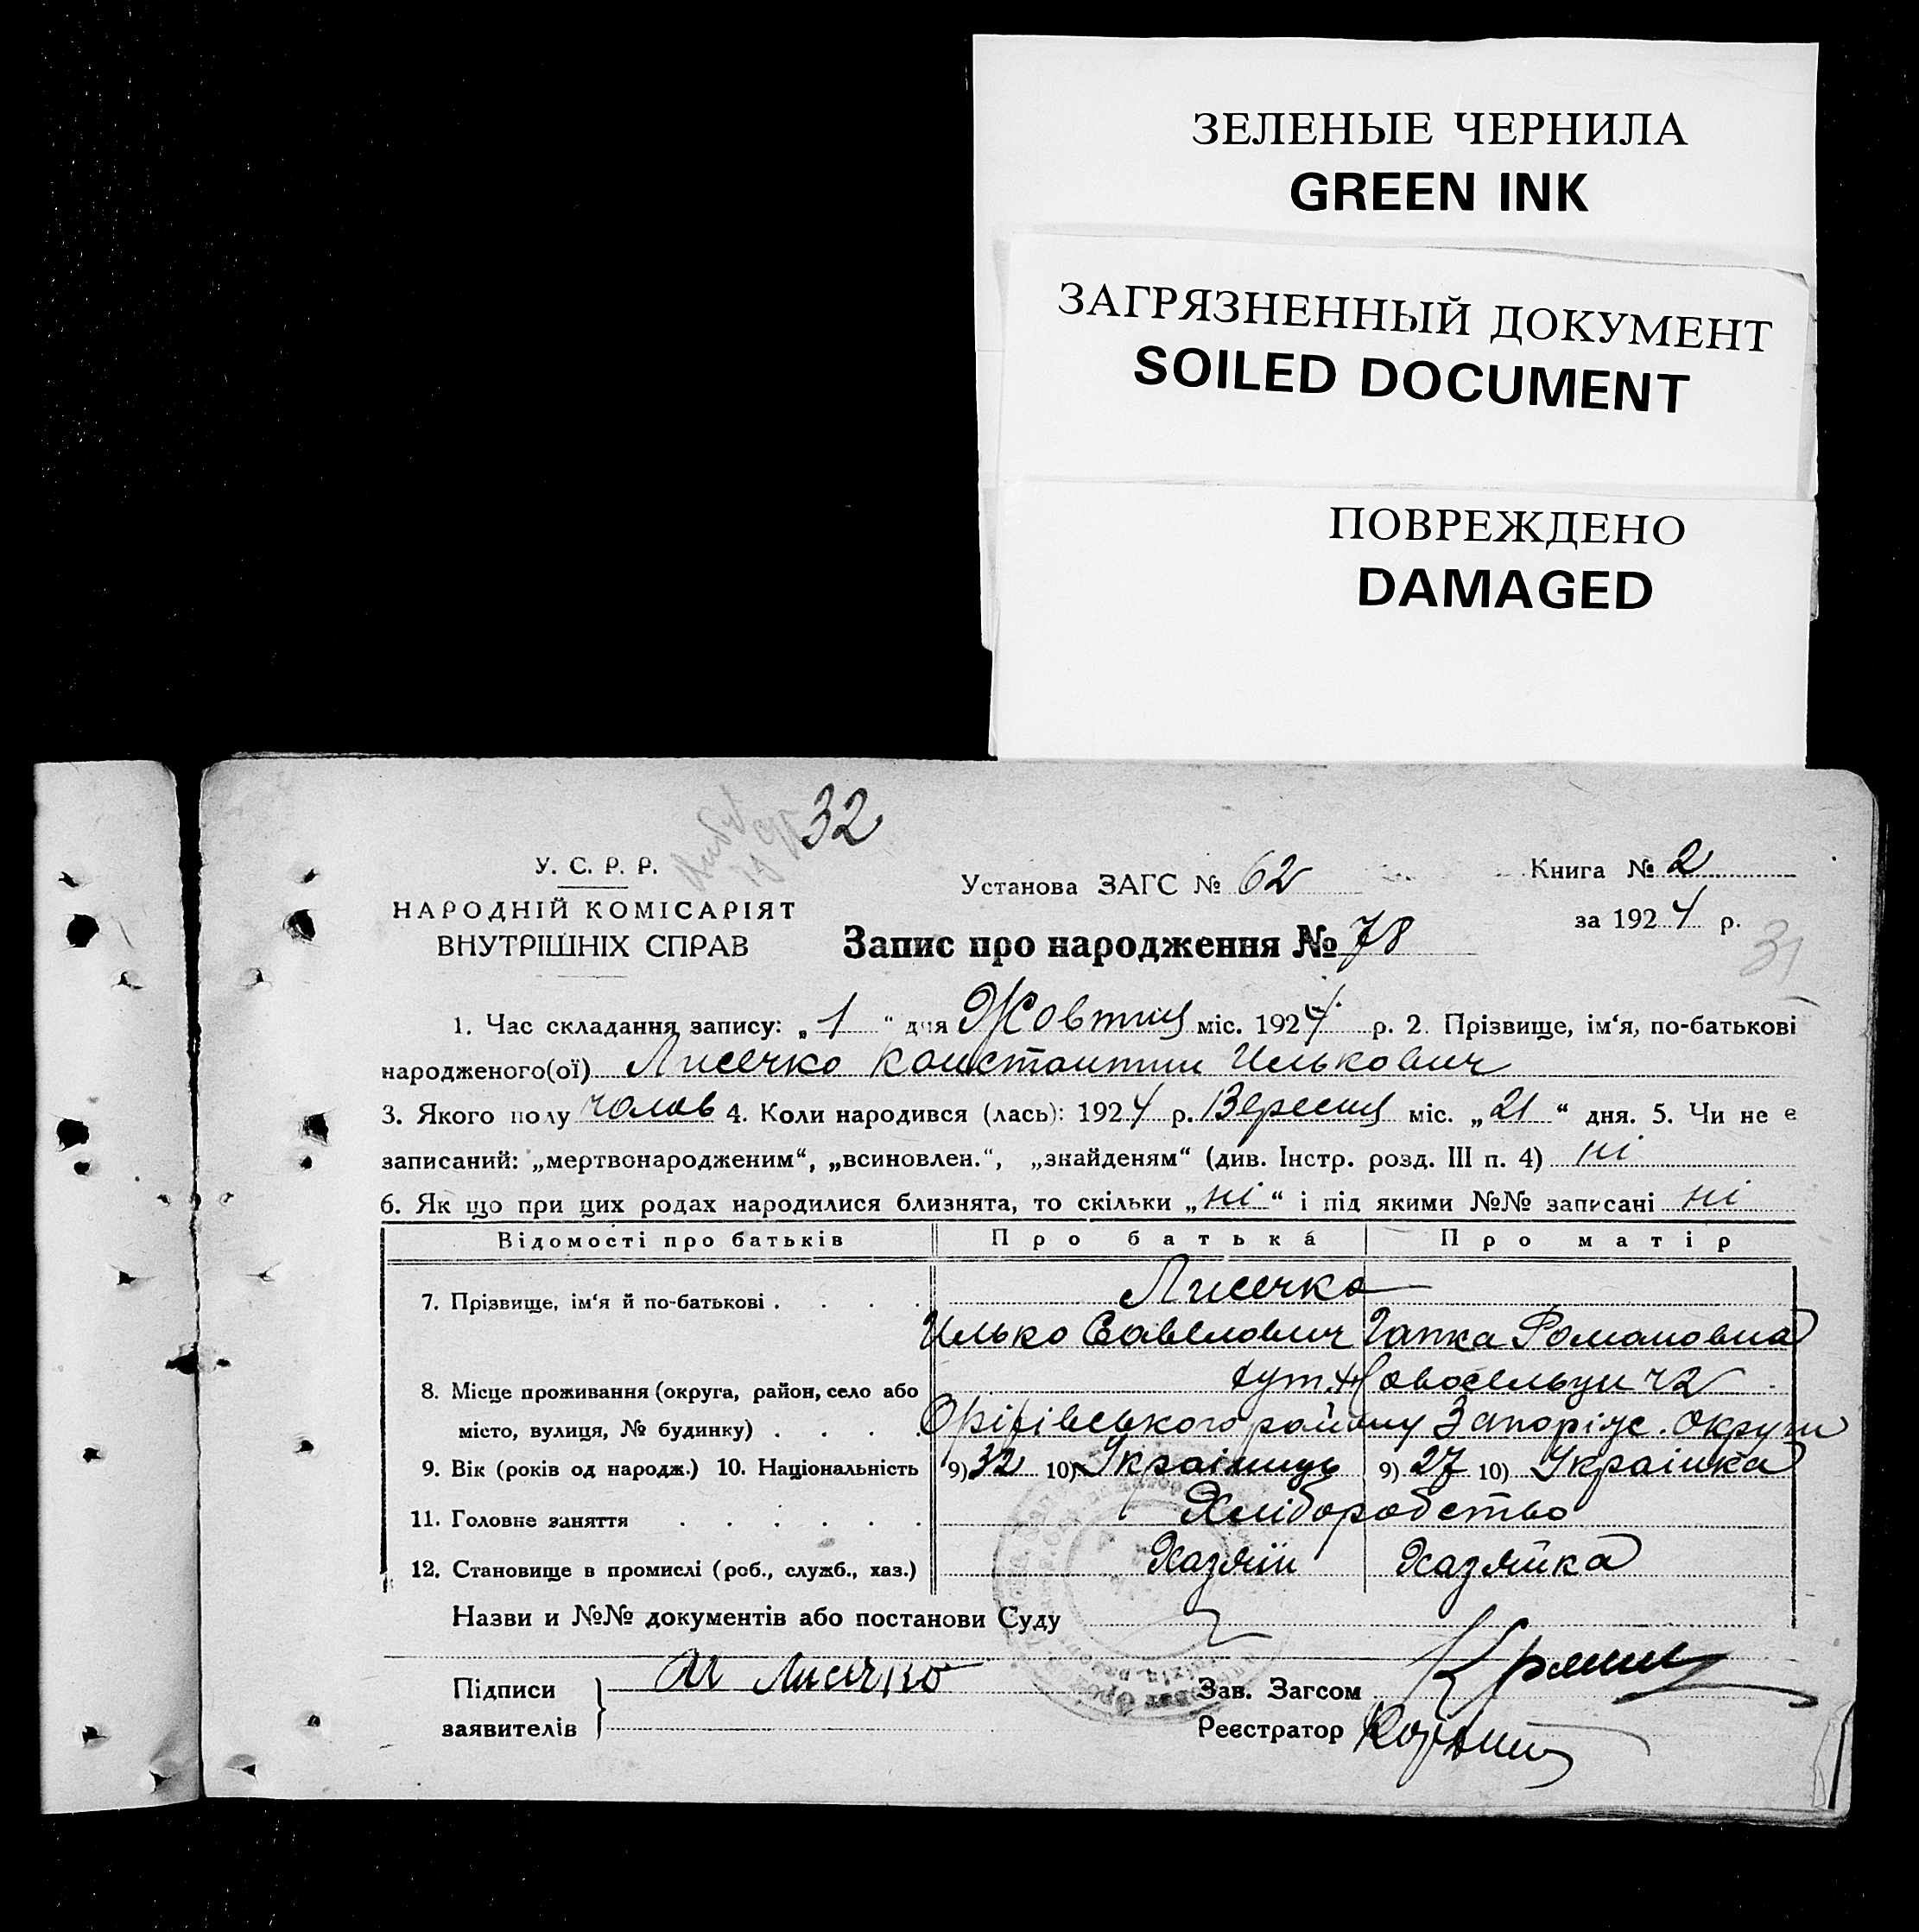 ЗЕЛЕНЫЕ ЧЕРНИЛА
GREEN INK
ЗАГРЯЗНЕННЫЙ ДОКУМЕНТ
SOILED DOCUMENT
ПОВРЕЖДЕНО
DAMAGED
32
У. С. Р. Р.
НАРОДНІЙ КОМІСАРІЯТ
ВНУТРІШНІХ СПРАВ
Установа ЗАГС № 62
Книга № 2
за 1924 р.
31
Запис про народження № 78
1. Час складання запису: „1“ дня Жовтня міс. 1924 р. 2. Прізвище, ім‘я, по-батькові
народженого(ої) Лисечко Константин Илькович
3. Якого полу чолов 4. Коли народився (лась): 1924 р. Вересня міс. „21“ дня. 5. Чи не е
записаний: „мертвонародженим“, „всиновлен.“, „знайденям“ (див. Інстр. розд. III п. 4) ні
6. Як що при цих родах народилися близнята, то скільки „ні“ і під якими №№ записані ні
Відомості про батьків Про батька Про матір
7. Прізвище, ім‘я й по-батькові . . . . Лисечко
Илько Савелович Гапка Романовна
8. Місце проживання (округа, район, село або хут. Новосельци ч2
місто, вулиця, № будинку) . . . . Оріхівського району Запоріж. округи
9. Вік (років од народж.) 10. Національність 9) 32 10) Українець 9) 27 10) Українка
11. Головне заняття . . . . . . Хліборобство
12. Становище в промислі (роб., служб., хаз.) Хазяїн Хазяйка
Назви и №№ документів або постанови Суду
Підписи заявителів И Лисечко
Зав. Загсом
Реєстратор